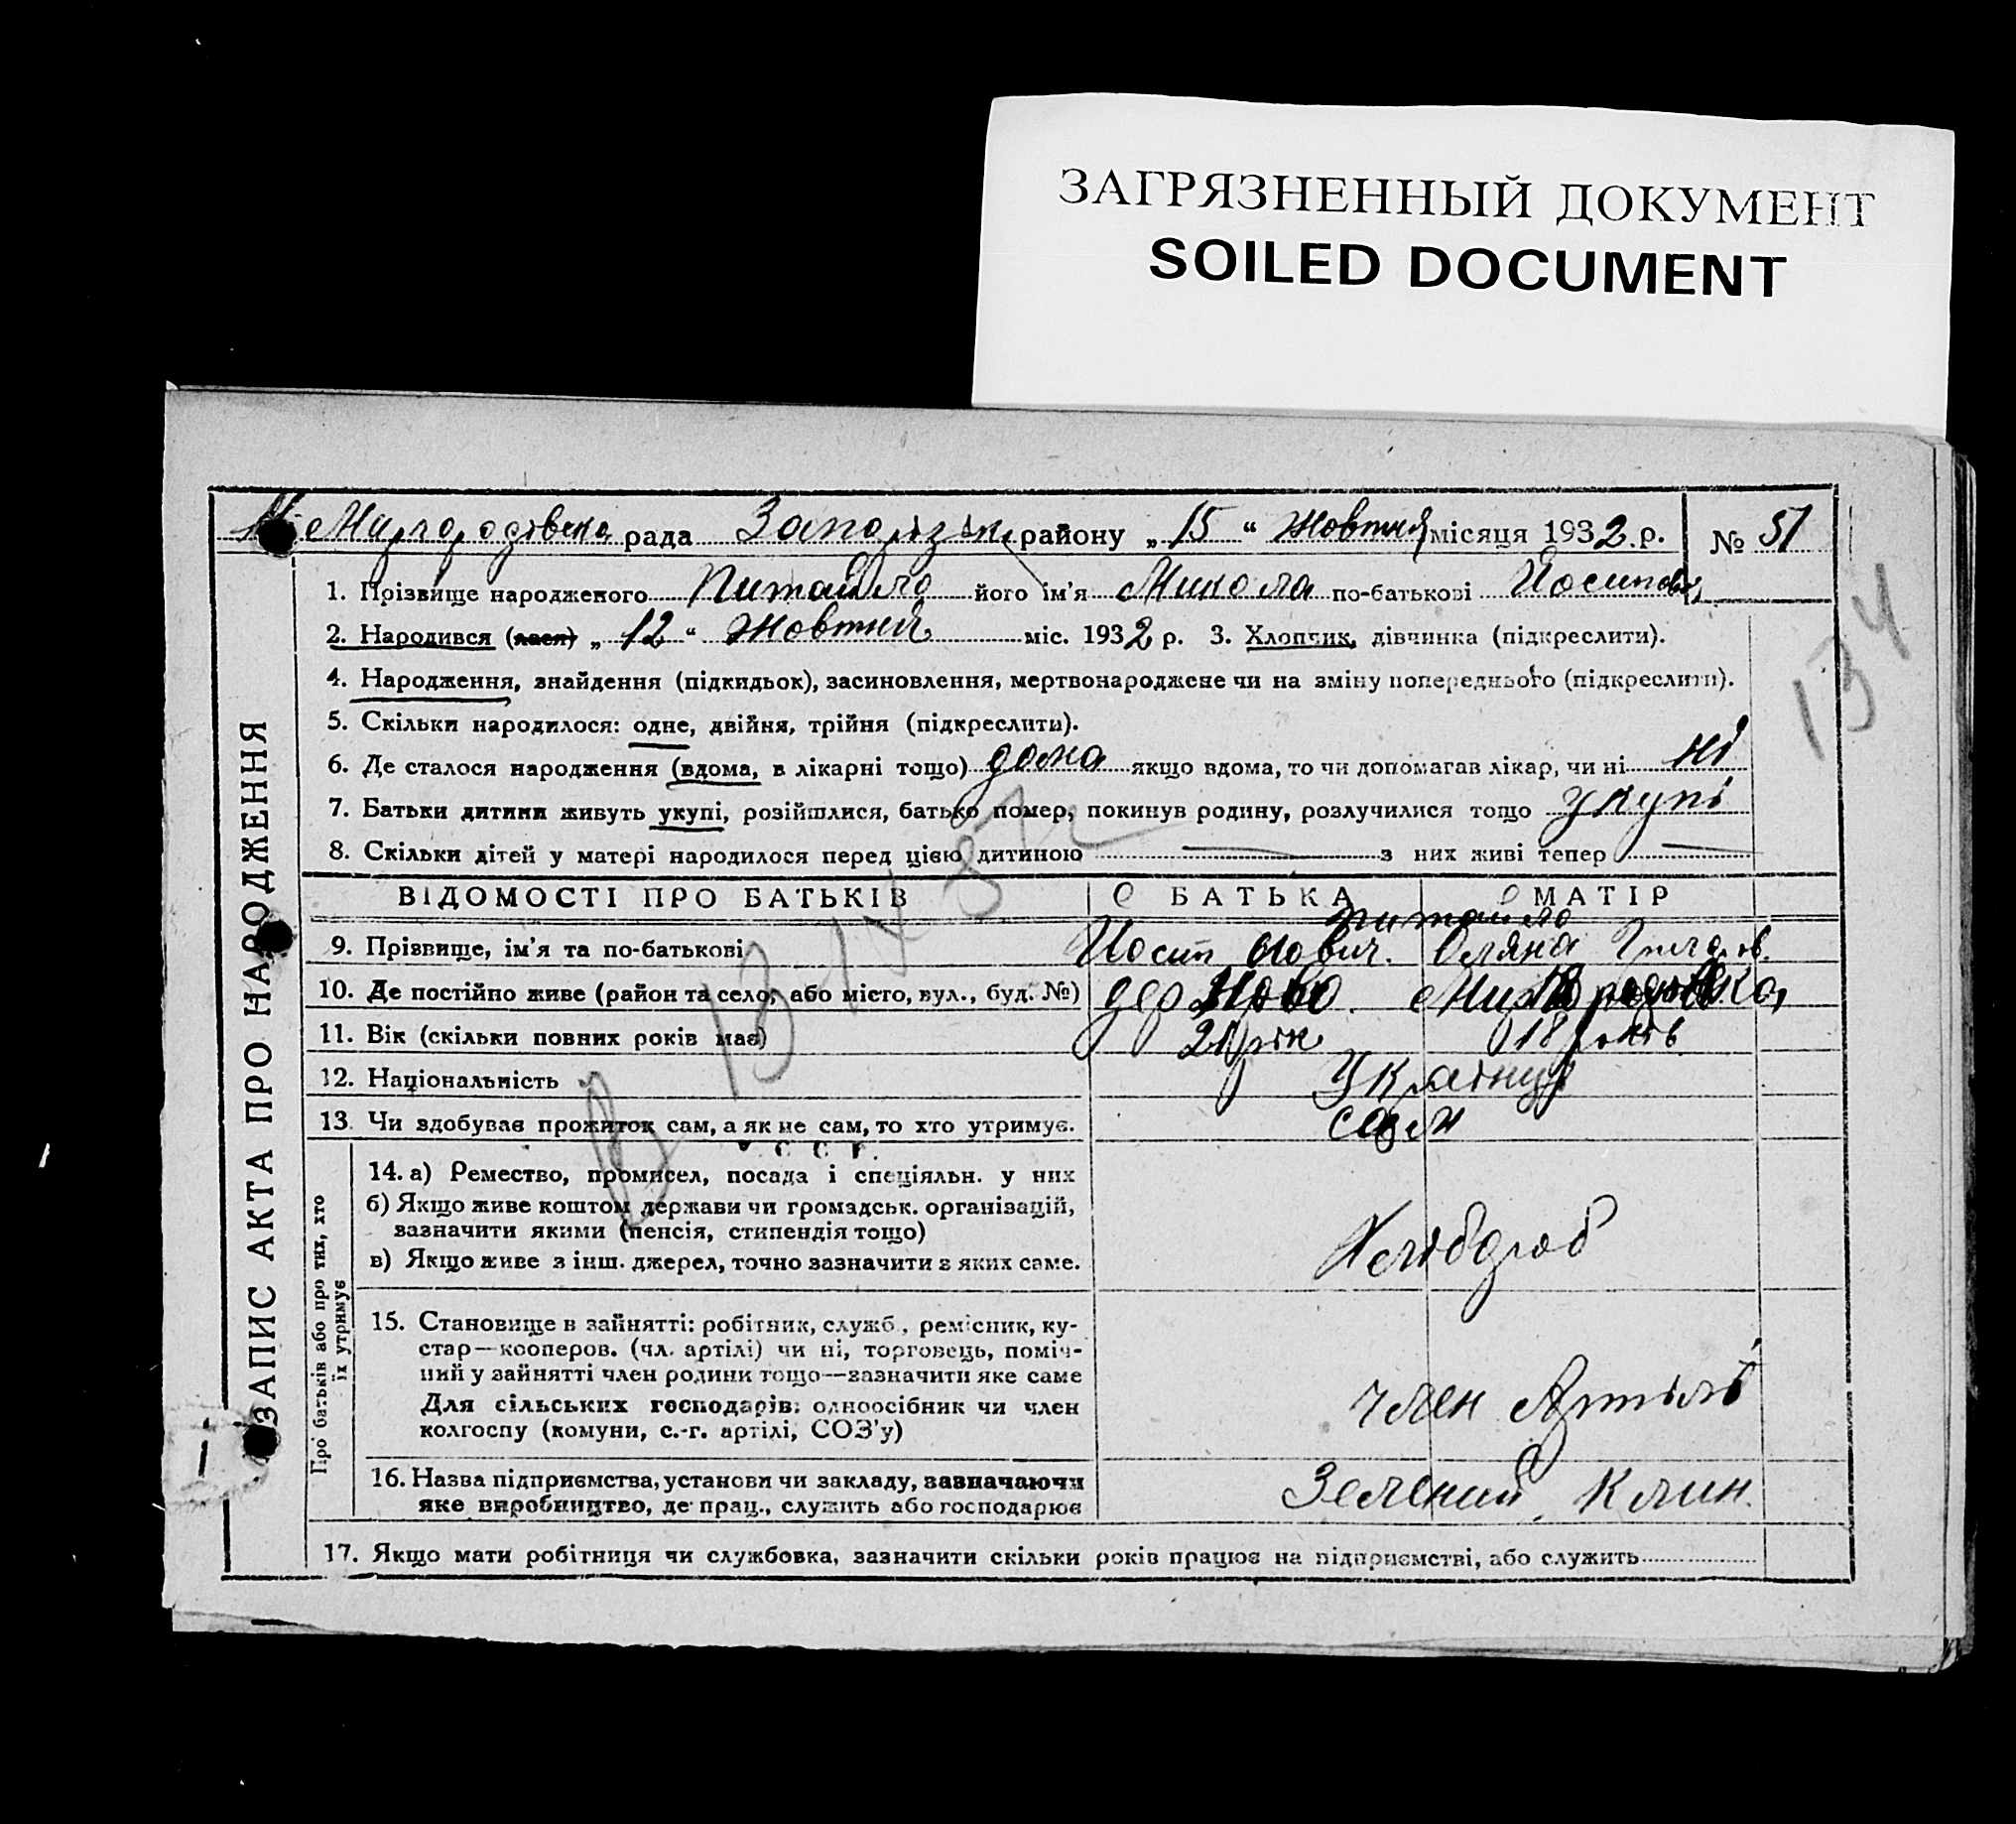 ЗАГРЯЗНЕННЫЙ ДОКУМЕНТ
SOILED DOCUMENT
Миргородівська рада Запорізьк. району „ 15 “ Жовтня місяця 1932 р. № 51
134
1. Прізвище народженого Питайло його ім'я Микола по-батькові Йосипов.
2. Народився (лася) „ 12 “ Жовтня міс. 1932 р. 3. Хлопчик, дівчинка (підкреслити).
4. Народження, знайдення (підкидьок), засиновлення, мертвонароджене чи на зміну попереднього (підкреслити).
5. Скільки народилося: одне, двійня, трійня (підкреслити).
6. Де сталося народження (вдома, в лікарні тощо) дома якщо вдома, то чи допомагав лікар, чи ні ні
7. Батьки дитини живуть укупі, розійшлися, батько помер, покинув родину, розлучилися тощо укупі
8. Скільки дітей у матері народилося перед цією дитиною — з них живі тепер —
ВІДОМОСТІ ПРО БАТЬКІВ О БАТЬКА О МАТІР
Питайло
9. Прізвище, ім'я та по-батькові Йосип Оляна Григоров.
10. Де постійно живе (район та село, або місто, вул., буд. №) дер Ново Миргородівка,
11. Вік (скільки повних років має) 21 рік 18 років
12. Національність Українці
13. Чи здобував прожиток сам, а як не сам, то хто утримує. сам
У. С. С. Р.
14. а) Ремество, промисел, посада і спеціяльн. у них
б) Якщо живе коштом держави чи громадськ. організацій,
зазначити якими (пенсія, стипендія тощо) Хлібороб
в) Якщо живе з інш. джерел, точно зазначити з яких саме.
15. Становище в зайнятті: робітник, служб., ремісник, ку-
стар—кооперов. (чл. артілі) чи ні, торговець, поміч-
ний у зайнятті член родини тощо—зазначити яке саме
Для сільських господарів: одноосібник чи член член Артілі
колгоспу (комуни, с.-г. артілі, СОЗ'у)
16. Назва підприємства, установи чи закладу, зазначаючи Зелений Клин.
яке виробництво, де прац., служить або господарює
17. Якщо мати робітниця чи службовка, зазначити скільки років працює на підприємстві, або служить
ЗАПИС АКТА ПРО НАРОДЖЕННЯ
Про батьків або про тих, хто
їх утримує